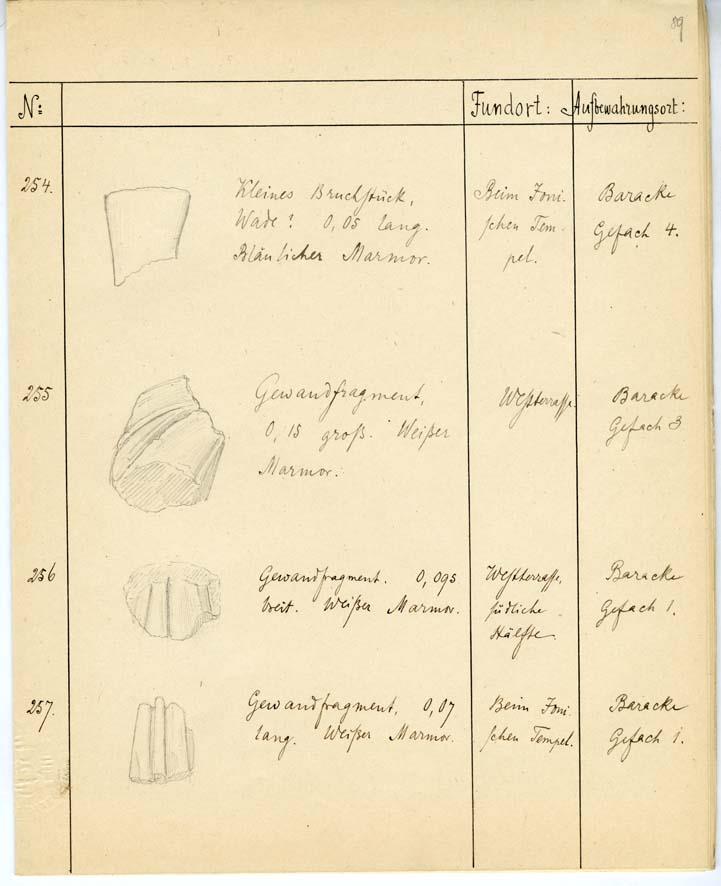 89
N: Fundort: Aufbewahrungsort:
254. Kleines Bruchstück, Beim Joni- Baracke
Wade? 0,05 lang. schen Tem- Gefach 4.
Bläulicher Marmor. pel.
255 Gewandfragment, Westterrasse. Baracke
0,15 groß. Weißer Gefach 3
Marmor.
256 Gewandfragment. 0,095 Westterrasse, Baracke
breit. Weißer Marmor. südliche Gefach 1.
Hälfte.
257. Gewandfragment, 0,07 Beim Joni- Baracke
lang. Weißer Marmor. schen Tempel. Gefach 1.